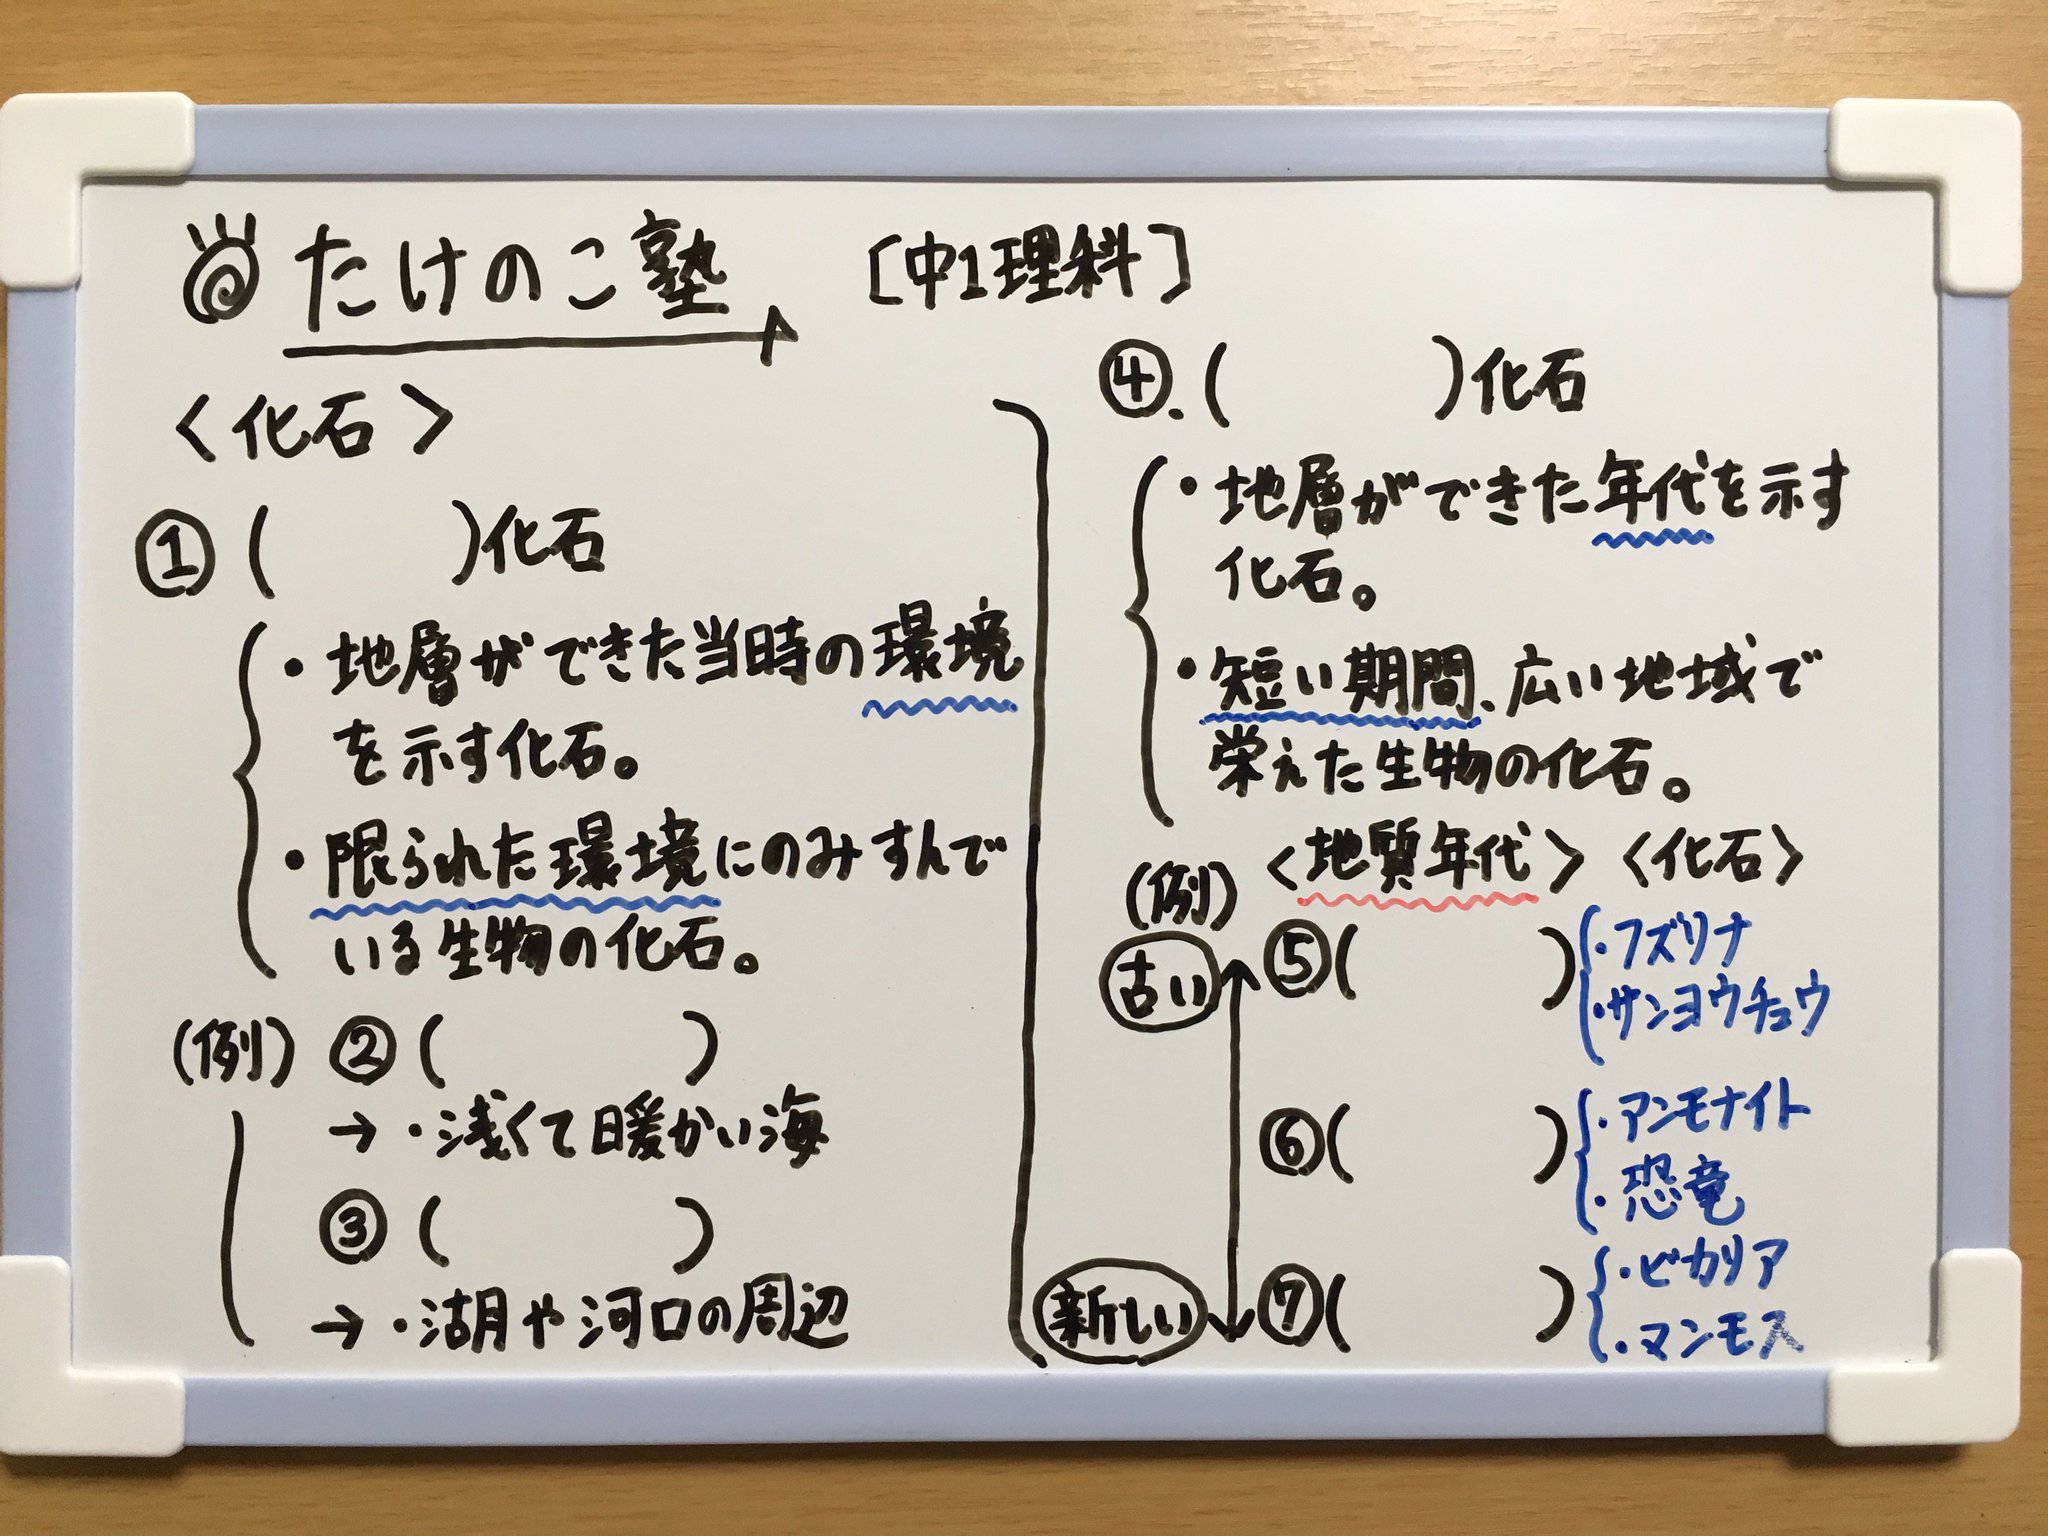 たけのこ塾 [中1理科]
<化石>
① (　　　)化石
・地層ができた当時の環境
を示す化石。
・限られた環境にのみすんで
いる生物の化石。
(例) ② (　　　)
→・浅くて暖かい海
③ (　　　)
→・湖や河口の周辺
④.(　　　)化石
・地層ができた年代を示す
化石。
・短い期間、広い地域で
栄えた生物の化石。
(例) <地質年代> <化石>
古い ⑤(　　　) ・フズリナ
・サンヨウチュウ
⑥(　　　) ・アンモナイト
・恐竜
新しい ⑦(　　　) ・ビカリア
・マンモス